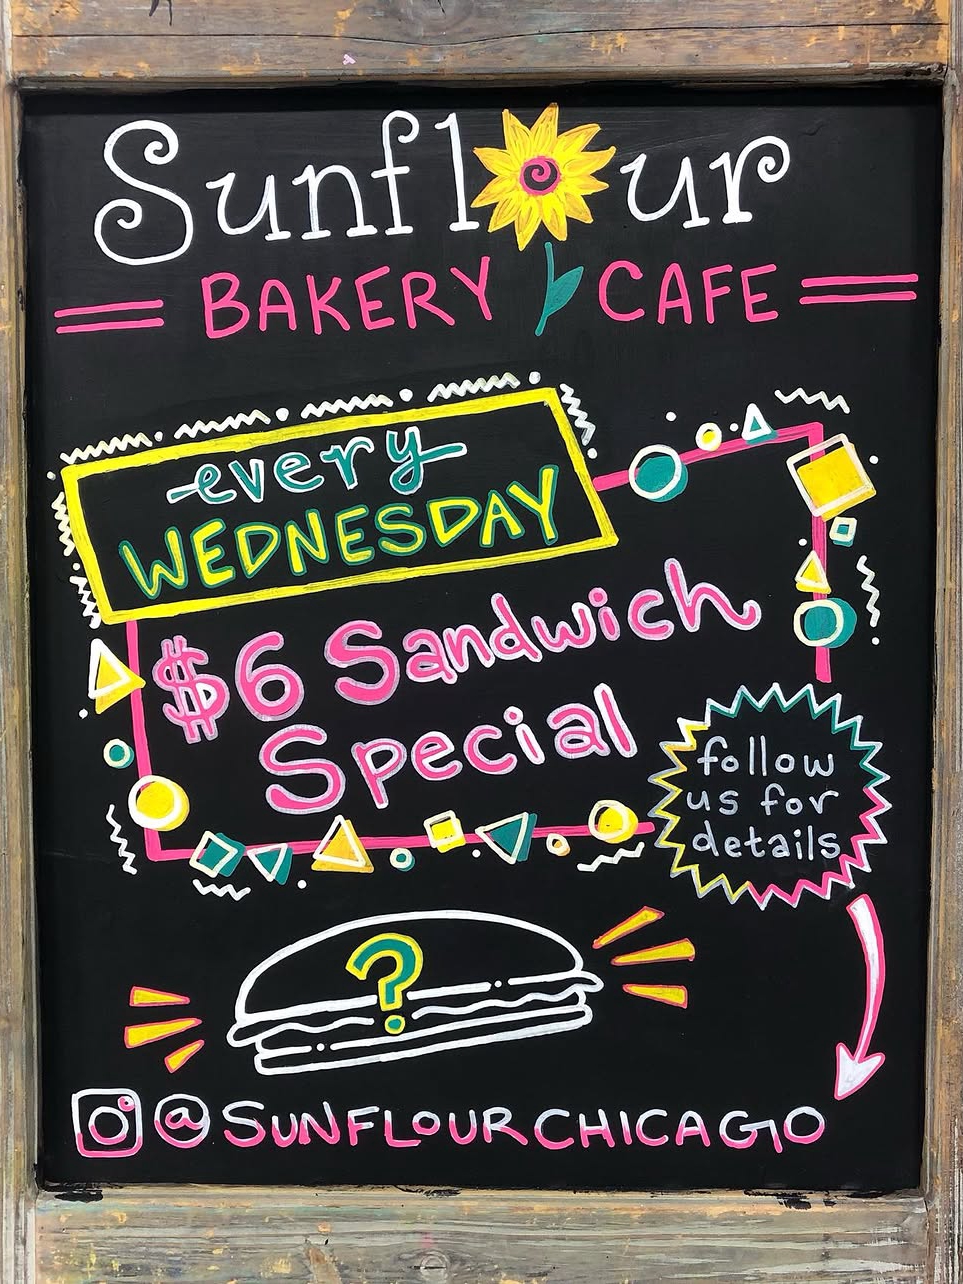 Sunflour
BAKERY CAFE
every
WEDNESDAY
$6 Sandwich
Special
follow
us for
details
?
@SUNFLOURCHICAGO